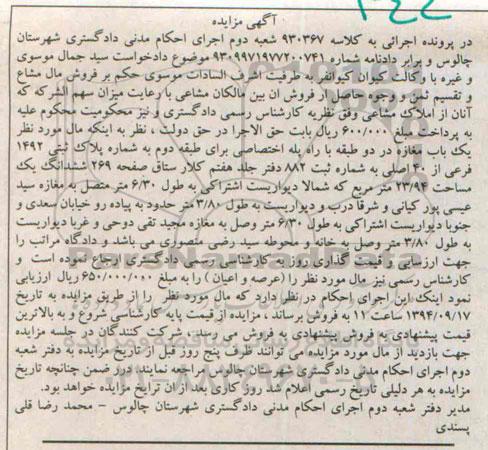 آگهی مزایده
در پرونده اجرائی به کلاسه ۹۳۰۳۶۷ شعبه دوم اجرای احکام مدنی دادگستری شهرستان
چالوس و برابر دادنامه شماره ۹۳۰۹۹۷۱۹۷۷۲۰۰۷۴۱ موضوع دادخواست سید جمال موسوی
و غیره با وکالت کیوان اکبوانفر به طرفیت اشرف السادات موسوی حکم بر فروش مال مشاع
و تقسیم ثمن و وجوه حاصل از فروش ان بین مالکان مشاعی با رعایت میزان سهم الشرکه که
آنان از املاک مشاعی وفق نظریه کارشناس رسمی دادگستری و نیز محکومیت محکوم علیه
به پرداخت مبلغ ۶۰۰/۰۰۰ ریال بابت حق الاجرا در حق دولت ، نظر به اینکه مال مورد نظر
یک باب مغازه در دو طبقه با راه پله اختصاصی برای طبقه دوم به شماره پلاک ثبتی ۱۴۹۲
فرعی از ۴۰ اصلی به شماره ثبت ۸۸۲ دفتر جلد هفتم کلار ستاق صفحه ۲۶۹ ششدانگ یک
مساحت ۲۳/۹۴ متر مربع که شمالا دیواریست اشتراکی به طول ۶/۳۰ متر متصل به مغازه سید
عیسی پور کیانی و شرقا درب و دیواریست به طول ۳/۸۰ متر حدود به پیاده رو خیابان سعدی و
جنوبا دیواریست اشتراکی به طول ۶/۳۰ متر وصل به مغازه مجید تقی دوحی و غربا دیواریست
به طول ۳/۸۰ متر وصل به خانه و محوطه سید رضی منصوری می باشد و دادگاه مراتب را
جهت ارزیابی و قیمت گذاری روز به کارشناس منتخب دادگستری ارجاع نموده است و
کارشناس رسمی نیز مال مورد نظر را (عرصه و اعیان ) را به مبلغ ۶۵۰/۰۰۰/۰۰۰ ریال ارزیابی
نمود اینک این اجرای احکام در نظر دارد که مال مورد نظر را از طریق مزایده به تاریخ
۱۳۹۴/۰۹/۱۷ ساعت ۱۱ به فروش برساند ، مزایده از قیمت پایه کارشناسی شروع و به بالاترین
قیمت پیشنهادی به فروش پیشنهادی به فروش می رسد . شرکت کنندگان در جلسه مزایده
جهت بازدید از مال مورد مزایده می توانند ظرف پنج روز قبل از تاریخ مزایده به دفتر شعبه
دوم اجرای احکام مدنی دادگستری شهرستان چالوس مراجعه نمایند درر ضمن چنانچه تاریخ
مزایده به هر دلیلی تاریخ رسمی اعلام شد روز کاری بعد از ان ترایخ مزایده خواهد بود.
مدیر دفتر شعبه دوم اجرای احکام مدنی دادگستری شهرستان چالوس – محمد رضا قلی
پسندی